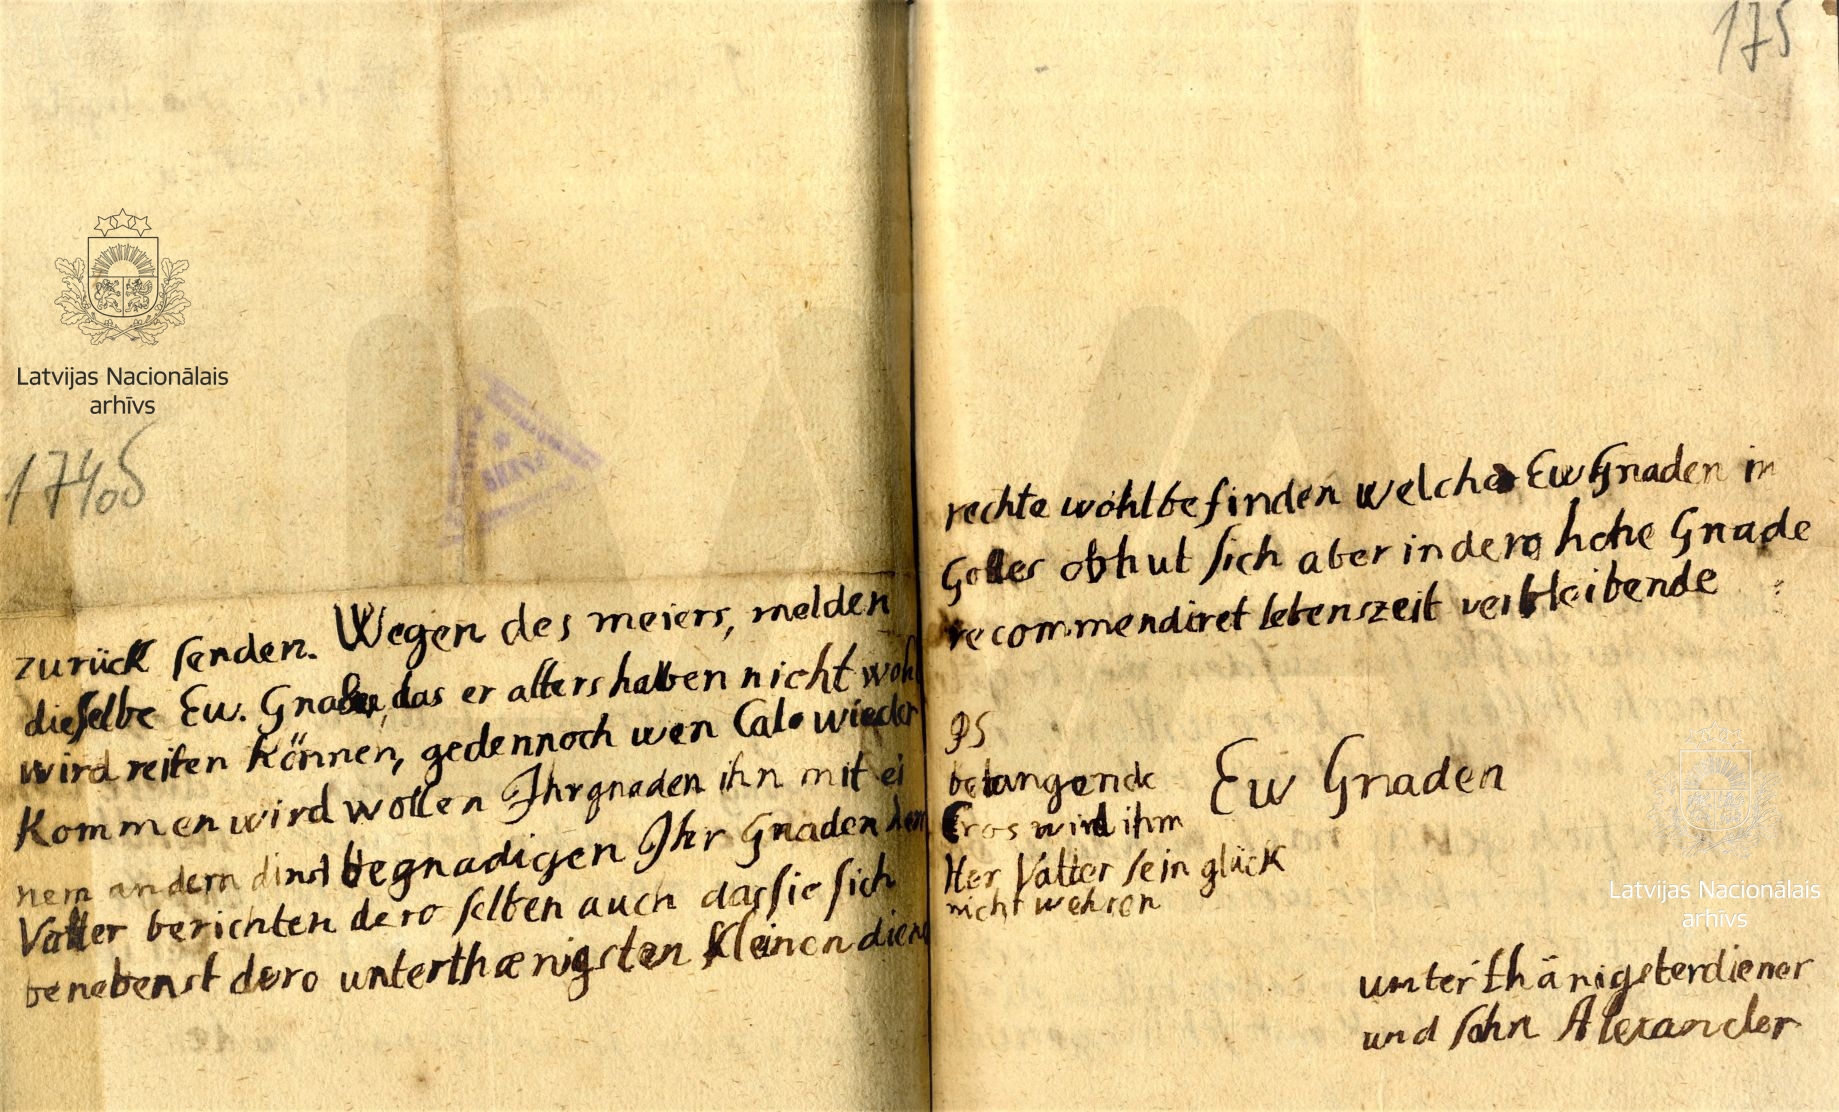 175
Latvijas Nacionālais
arhīvs
174.
zurück senden. Wegen des meiers, melden
dieselbe Ew. Gnaden, das er alters halben nicht wohl
wird reiten können, gedennoch wen Calo wieder
kommen wird wollen Ihrgnaden ihn mit ei
nem andern dinst begnadigen Ihr Gnaden hern
Vatter berichten dero selben auch dassie sich
benebenst dero unterthænigsten kleinen diener
rechte wohlbefinden welche Ew Gnaden in
Gottes obhut sich aber in dero hohe Gnade
recommendiret lebenszeit verbleibende
PS
belangende
Cros wird ihm
Her Vatter sein glück
nicht wehren
Ew Gnaden
Latvijas Nacionālais
arhīvs
unterthänigsterdiener
und sohn Alexander